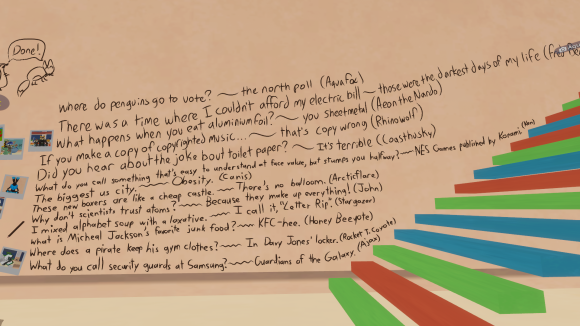 Done!
Where do penguins go to vote? ~ the north poll (Aquafox)
There was a time where I couldn't afford my electric bill ~ those were the darkest days of my life
What happens when you eat aluminium foil? ~ you sheetmetal (Aeon the Nardo)
If you make a copy of copyrighted music... ~ that's copy wrong (Rhinowolf)
Did you hear about the joke bout toilet paper? ~ It's terrible (Coasthusky)
What do you call something that's easy to understand at face value, but stumps you halfway? ~ NES Games published by Konami.
The biggest us city. ~ Obesity. (Caris)
These new boxers are like a cheap castle. ~ There's no ballroom. (Arcticflare)
Why don't scientists trust atoms? ~ Because they make up everything! (John)
I mixed alphabet soup with a laxative. ~ I call it, "Letter Rip". (Stargazer)
What is Micheal Jackson's favorite junk food? ~ KFC-hee. (Honey Beeyote)
Where does a pirate keep his gym clothes? ~ In Davy Jones' locker. (Rocket T. Coyote)
What do you call security guards at Samsung? ~ Guardians of the Galaxy. (Ajax)